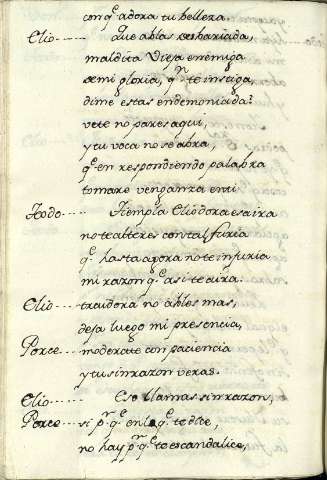 con q.e adora tu belleza
Elio---- Que ablas desbariada,
maldita Vieja enemiga
de mi gloria, q.n te instiga,
dime estas endemoniada?
vete no pares aqui,
y tu voca no se abra,
q.e en respondiendo palabra
tomare venganza en ti
Teodo---- Tiempla Eliodora esa ira
no te alteres con tal furia
q.e hasta agora no te injuria
mi razon q.e asi te aira.
Elio---- traidora no ables mas,
deja luego mi presencia,
Porce---- moderate con paciencia
y tu sinrazon veras.
Elio---- Eso llamas sinrazon,
Porce---- si p.r q.e en lo q.e te dije,
no hay p.r q.e te escandalice,